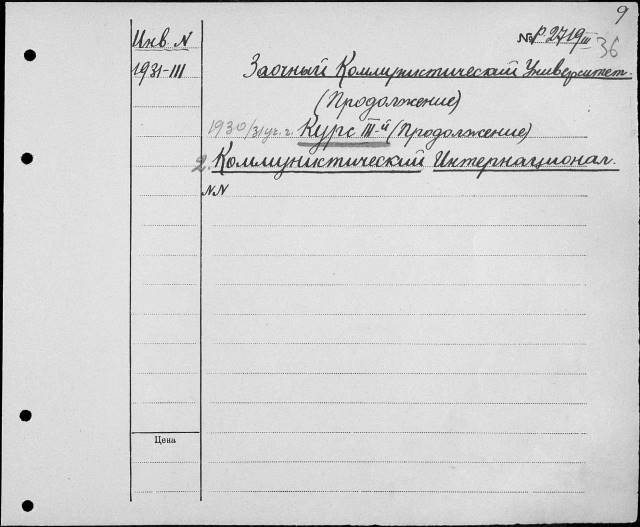 9
Инв. N № Р 2719 III 36
1931-III Заочный Коммунистический Университет.
(Продолжение)
1930/31 уч. г. Курс III-й (Продолжение)
2. Коммунистический Интернационал.
NN
Цена